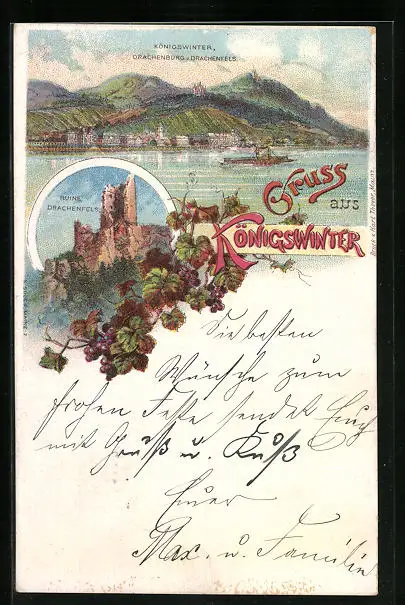 KÖNIGSWINTER,
DRACHENBURG u. DRACHENFELS.
RUINE
DRACHENFELS
Gruss
aus
KÖNIGSWINTER
Die besten
Wünsche zum
frohen Feste sendet Euch
mit Gruß u. Kuß
Euer
Max. u. Familie